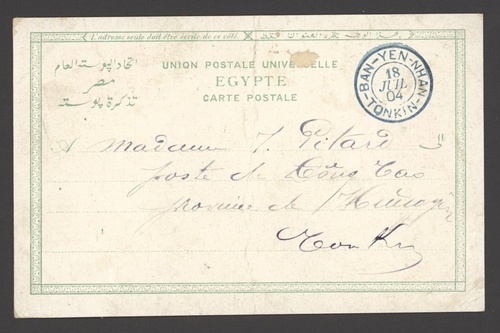 L'adresse seule doit être écrite de ce côté
اتحاد البوستة العام
مصر
تذكرة بوسته
UNION POSTALE UNIVERSELLE
EGYPTE
CARTE POSTALE
BAN-YEN-NHAN
18
JUIL
04
TONKIN
A Madame J. Pitard الى
poste de
province de
Tonkin